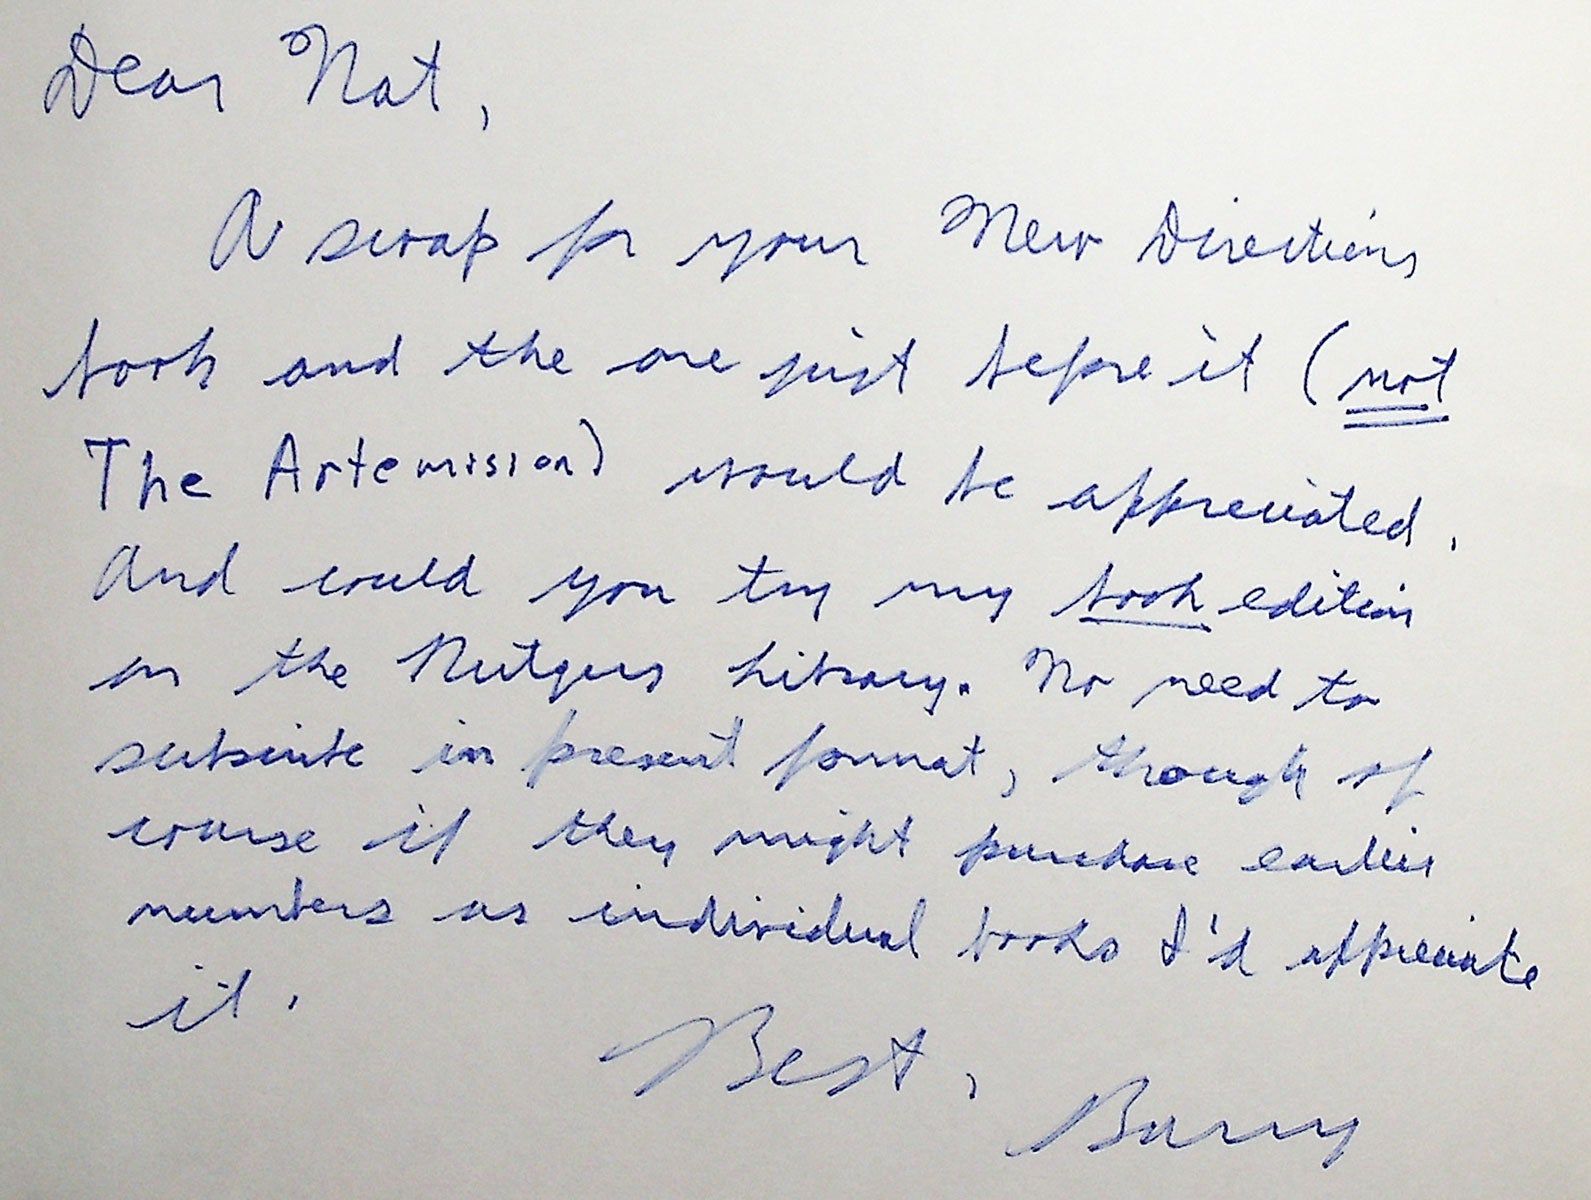 Dear Nat,
A swap for your New Directions
book and the one just before it (not
The Artemision) would be appreciated.
And could you try my book edition
on the Rutgers Library. No need to
subscribe in present format, though of
course if they might purchase earlier
numbers as individual books I'd appreciate
it.
Best,
Barry